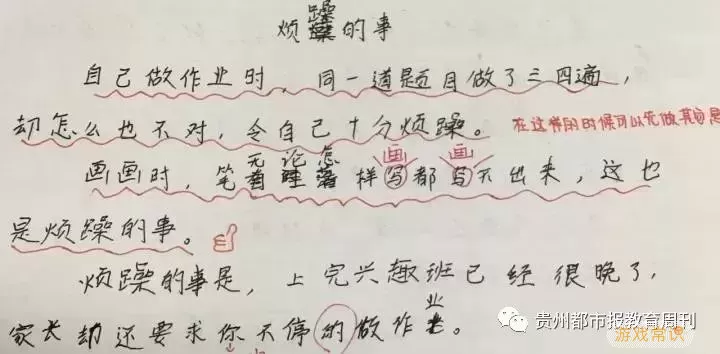 烦躁的事
自己做作业时，同一道题目做了三四遍，
却怎么也不对，令自己十分烦躁。
在这样的时候可以先做其
画画时，笔无论怎样写都写不出来，这也
画 画
是烦躁的事。
烦躁的事是，上完兴趣班已经很晚了，
家长却还要求你不停的做作业。
贵州都市报教育周刊
游戏常识